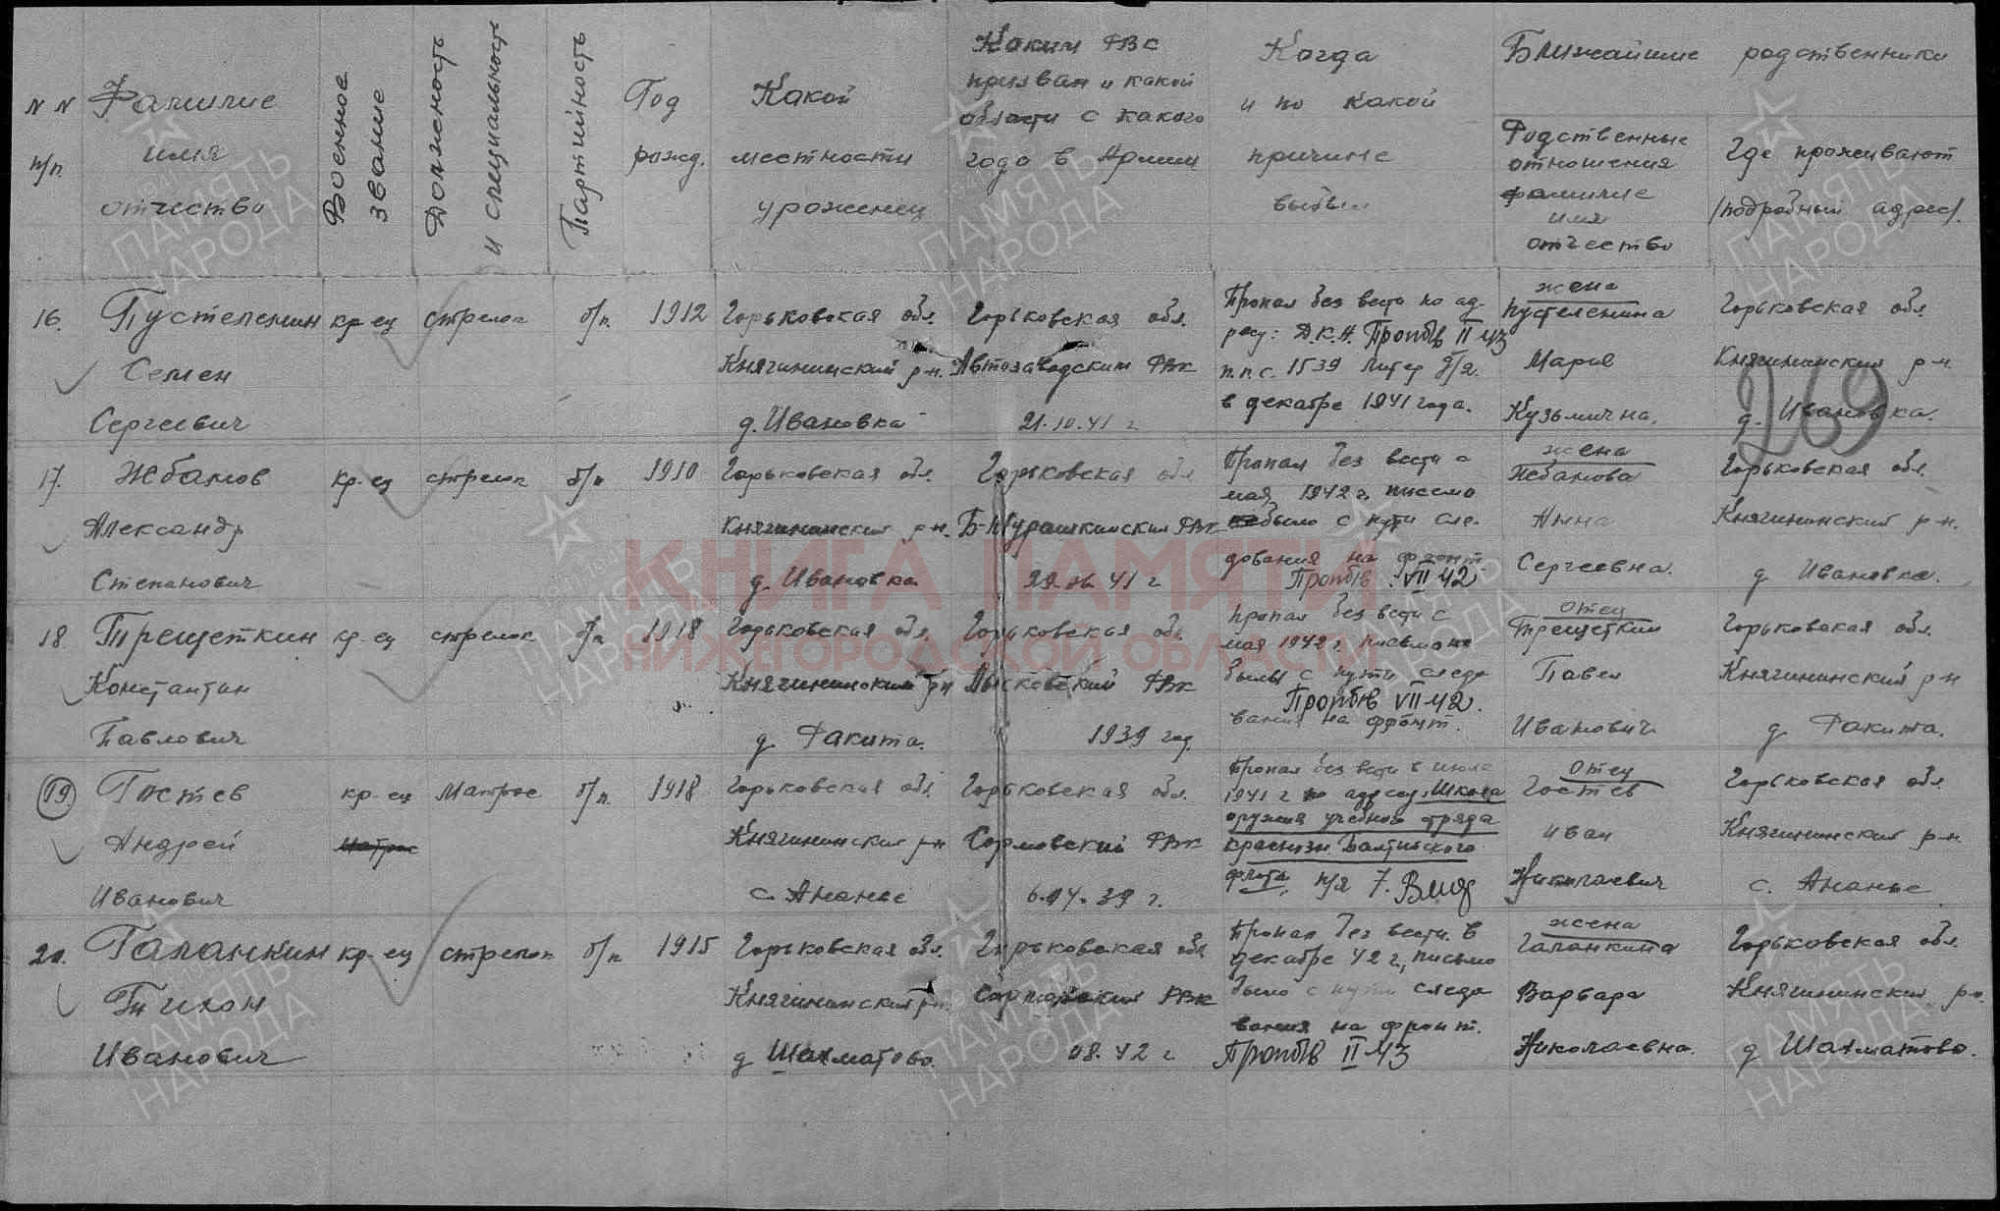 N N п/п.
Фамилие
имя
отчество
Военное звание
Должность и специальность
Партийность
Год рожд.
Какой
местности
уроженец
Каким РВС
призван и какой
области с какого
года в Армии
Когда
и по какой
причине
выбыл
Ближайшие родственники
Родственные
отношения
фамилие
имя
отчество
Где проживают
/подробный адрес/.
16. Пустеленин кр-ец стрелок б/п. 1912
Семен
Сергеевич
Горьковская обл.
Княгининский р-н.
д. Ивановка
Горьковская обл.
Автозаводским РВК
21.10.41 г
Пропал без вести по ад-
ресу: Д.К.А. Проп б/в II 43
п.п.с. 1539 Литер б/я.
в декабре 1941 года.
жена
Пустеленина
Мария
Кузьминична.
Горьковская обл.
Княгининский р-н.
д. Ивановка.
269
17. Жбанов кр-ец стрелок б/п 1910
Александр
Степанович
Горьковская обл.
Княгининский р-н.
д. Ивановка
Горьковская обл
Б-Мурашкинский РВК
41 г
Пропал без вести с
мая 1942 г. письмо
было с пути сле-
дования на фронт.
Проп б/в VII 42
жена
Жбанова
Анна
Сергеевна.
Горьковская обл.
Княгининский р-н.
д Ивановка.
18. Трещеткин кр-ец стрелок б/п 1918
Константин
Павлович
Горьковская обл.
Княгининский р-н
д. Ракита.
Горьковская обл.
Лысковский РВК
1939 год.
Пропал без вести с
мая 1942 г. письма
были с пути следо
Проп б/в VII 42.
вания на фронт.
отец
Трещеткин
Павел
Иванович
Горьковская обл.
Княгининский р-н
д. Ракита.
19 Гостев кр-ец Матрос б/п. 1918
Андрей матрос
Иванович
Горьковская обл.
Княгининский р-н
с. Ананье
Горьковская обл.
Сормовский РВК
39 г.
Пропал без вести в июле
1941 г по адресу: Школа
оружия учебного отряда
краснозн. Балтийского
флота, п/я 7. Вмф
отец
Гостев
Иван
Николаевич
Горьковская обл.
Княгининский р-н
с. Ананье
20. Галанкин кр-ец стрелок б/п 1915
Тихон
Иванович
Горьковская обл.
Княгининский р-н.
д Шахматово.
Горьковская обл
РВК
08.42 г
Пропал без вести. В
декабре 42 г., письмо
было с пути следо
вания на фронт.
Проп б/в II 43
жена
Галанкина
Варвара
Николаевна.
Горьковская обл.
Княгининский р-н.
д Шахматово.
КНИГА ПАМЯТИ
НИЖЕГОРОДСКОЙ ОБЛАСТИ
ПАМЯТЬ
НАРОДА
ПАМЯТЬ
НАРОДА
ПАМЯТЬ
НАРОДА
ПАМЯТЬ
НАРОДА
ПАМЯТЬ
НАРОДА
ПАМЯТЬ
НАРОДА
ПАМЯТЬ
НАРОДА
ПАМЯТЬ
НАРОДА